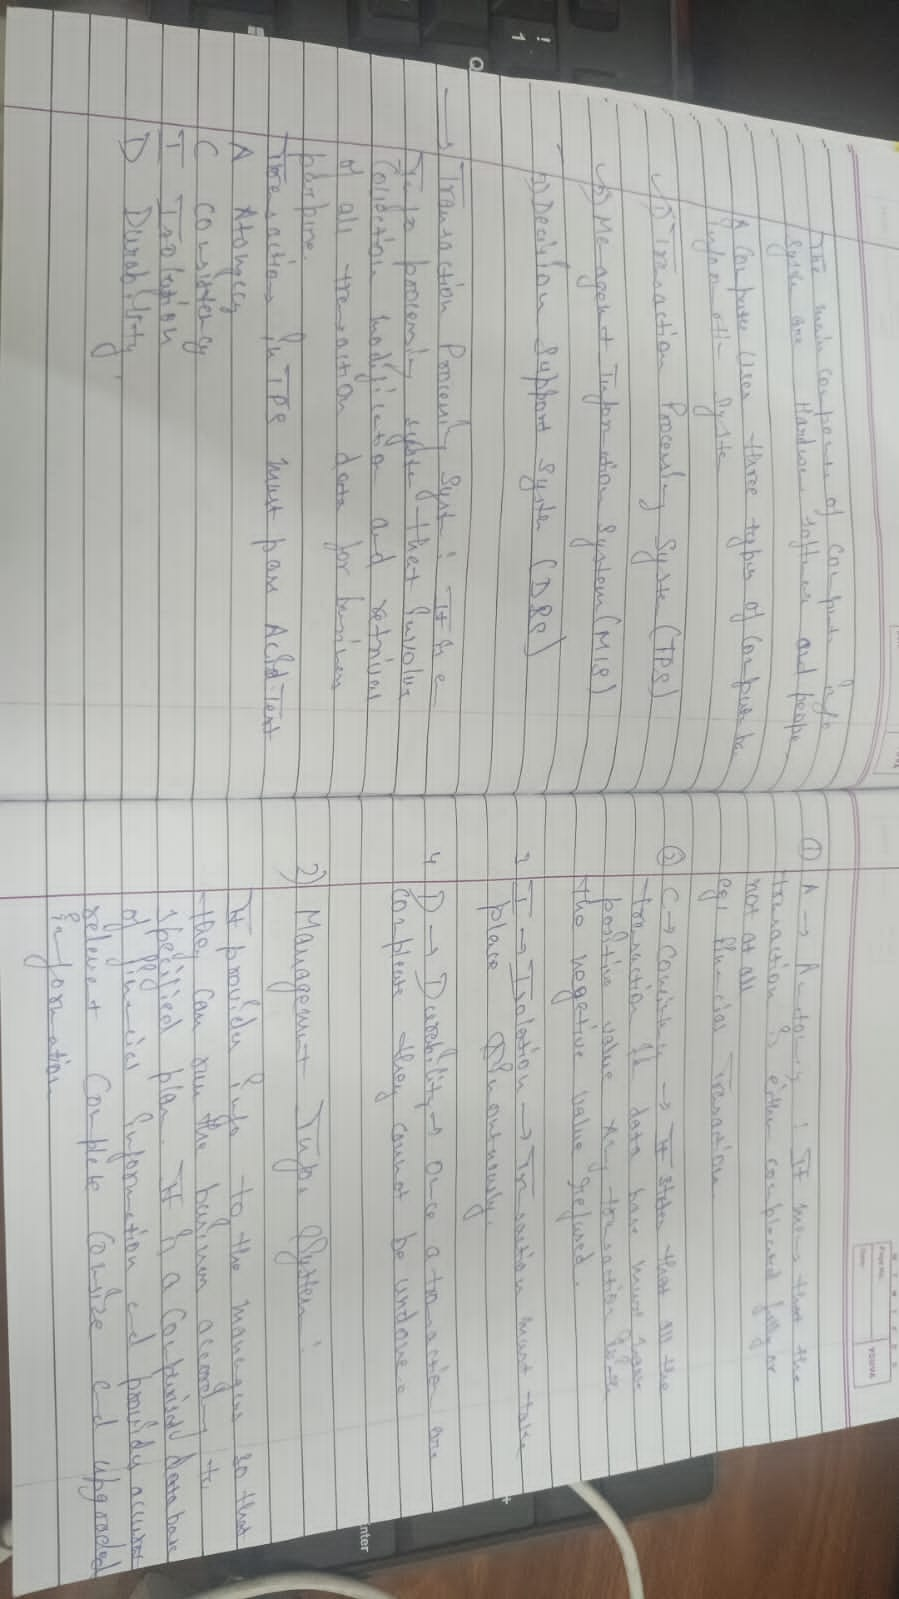 The main compone of Compute info
System are Hardware, software and people.
A Computer Uses three types of Compute ba
Information Syste
1) Transaction Processing Syste (TPS)
2) Management Information System (MIS)
3) Decision Support System (DSS)
→ Transaction Processing Syst : It is a
Info processing system that involve
Collection modification and retrival
of all transaction data for business
purpose.
Transaction in TPS must pass Acid-Test
A Atomicity
C consistency
I Isolation
D Durability
① A → : It means that the
transaction is either completed fully or
not at all
eg: financial Transaction.
② C → → It states that all the
transaction if data base must have
positive value any transaction
the negative value refused.
3 I → Isolation → Transaction must take
place
4 D → Durability → Once a transaction are
compleate they cannot be undone.
2) Management Info. System :
It provides info to the managers so that
they can run the business according to
specified plan. It is a data base
of financial information and provides accurate
relevant Complete Concise and upgraded
information